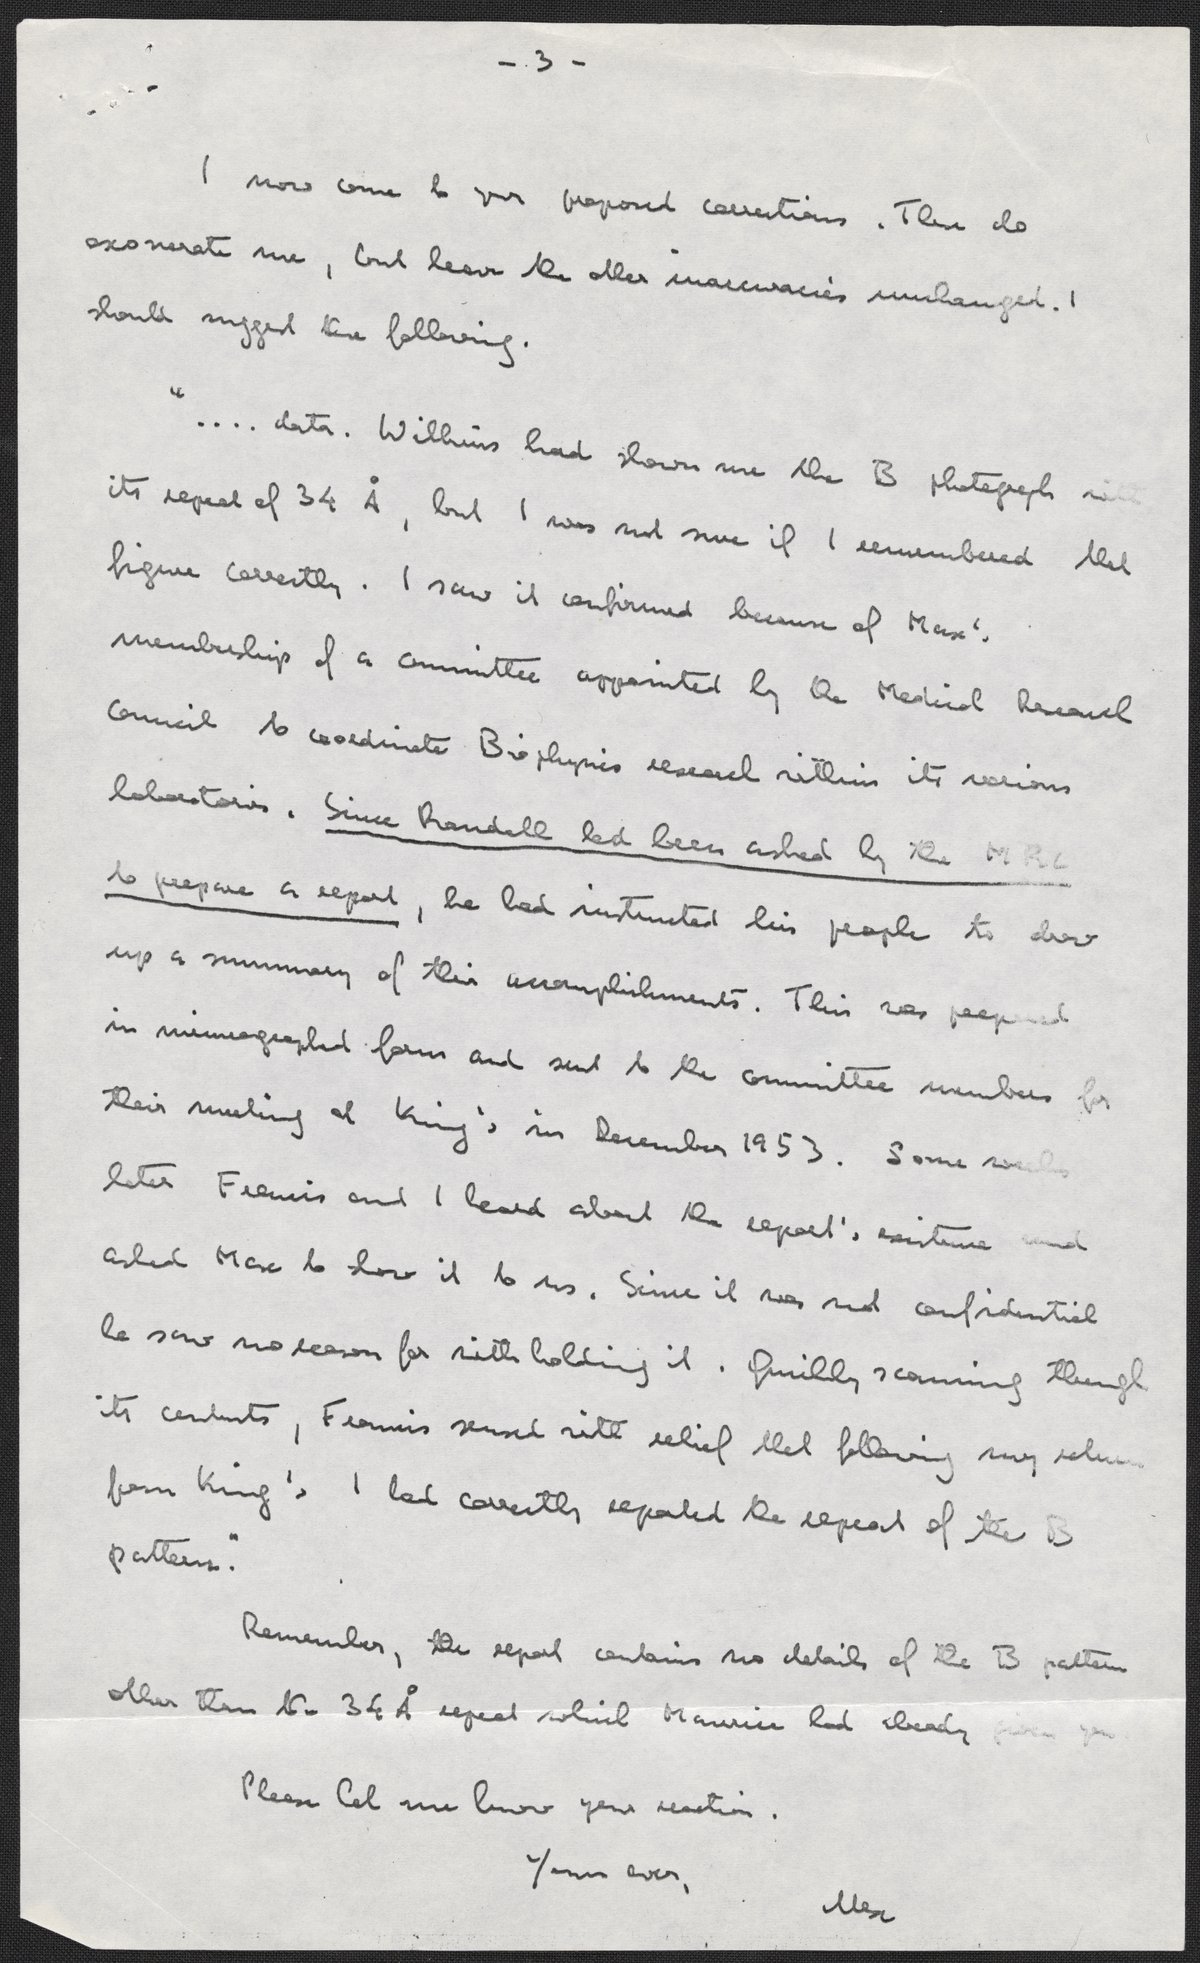 - 3 -
I now come to your proposed corrections. These do
exonerate me, but leave the other inaccuracies unchanged. I
should suggest the following.
".... data. Wilkins had shown me the B photograph with
its repeat of 34 Å, but I was not sure if I remembered that
figure correctly. I saw it confirmed because of Max's
membership of a committee appointed by the Medical Research
Council to coordinate Biophysics research within its various
laboratories. Since Randall had been asked by the MRC
to prepare a report, he had instructed his people to draw
up a summary of their accomplishments. This was prepared
in mimeographed form and sent to the committee members for
their meeting at King's in December 1953. Some weeks
later Francis and I heard about the report's existence and
asked Max to show it to us. Since it was not confidential
he saw no reason for withholding it. Quickly scanning though
its contents, Francis sensed with relief that following my return
from King's I had correctly reported the repeat of the B
pattern."
Remember, the report contains no details of the B pattern
other than the 34 Å repeat which Maurice had already given you.
Please let me know your reaction.
Yours ever,
Max